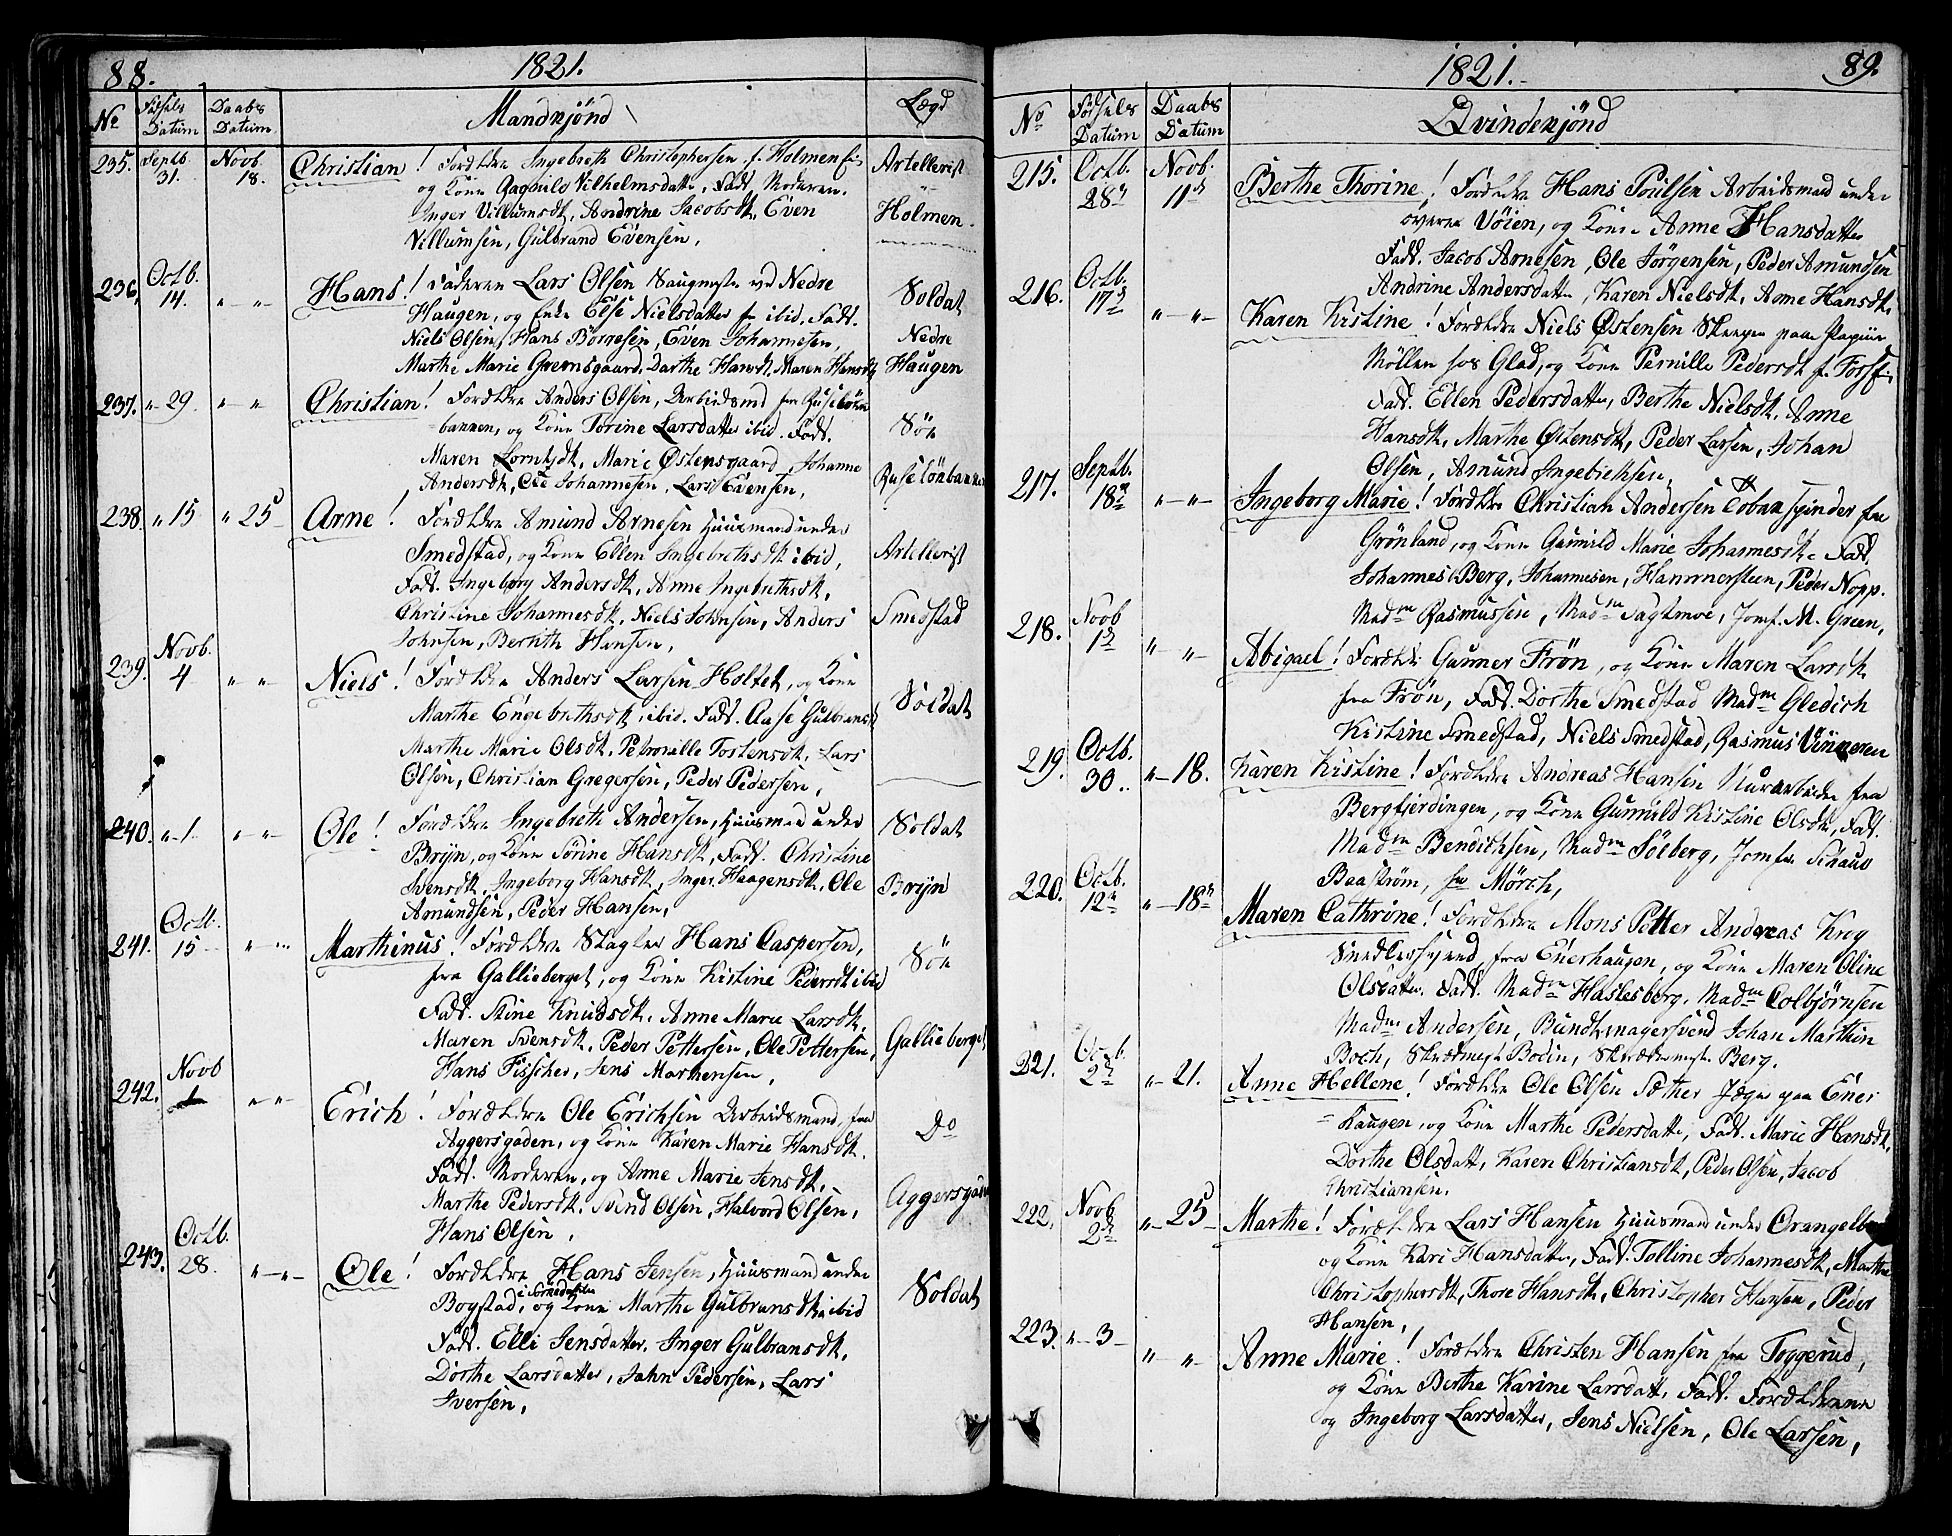 88.
1821.
Nº
Fødsels Datum
Daabs Datum
Mandkjönd
Lægd
235. Septb. 31. Novb. 18. Christian! Forældre Ingebreth Christophersen f. Holmen
og Kone Ragnild Vilhelmsdatter, Fadd. Moderen.
Inger Villumsdt, Andrine Jacobsdt, Even
Villumsen, Gulbrand Evensen,
Artellerist
Holmen.
236. Octb. 14. " — " Hans! Faderen Lars Olsen Saugmester ved Nedre
Haugen, og Enke Else Nielsdatter fr ibid, Fadd.
Niels Olsen, Hans Börresen, Even Johannesen,
Marthe Marie Grensgaard, Dorthe Hansdt, Maren Hansdt,
Soldat
Nedre
Haugen
237. " 29. " — " Christian! Forældre Anders Olsen, Arbeidsmd fra Ruselökbakken, og Kone Torine Larsdatter ibid. Fadd.
Maren Lorntzdt, Marie Østensgaard, Johanne
Andersdt, Ole Johannesen, Lars Evensen,
Sön
Ruselökbakken
238. " 15 " 25 Arne! Forældre Amund Arnesen Huusmand under
Smedstad, og Kone Ellen Ingebrethsdt ibid,
Fadd. Ingeborg Andersdt, Anne Ingebrethsdt,
Christine Johannesdt, Niels Johnsen, Anders
Johnsen, Bernth Hansen,
Artellerist
Smedstad
239. Novb. 4 " " Niels! Forældre Anders Larsen Holtet, og Kone
Marthe Engebrethsdt ibid. Fadd. Aase Gulbransdt
Marthe Marie Olsdt, Petronille Torstensdt, Lars
Olsen, Christian Gregersen, Peder Pedersen,
Soldat
240. " 1. " " Ole! Forældre Ingebreth Andersen, Huusmand under
Bryn, og Kone Sörine Hansdt, Fadd. Christine
Svensdt, Ingeborg Hansdt, Inger Haagensdt, Ole
Amundsen, Peder Hansen,
Soldat
Bryn
241. Octb. 15 " " Marthinus! Forældre Slagter Hans Caspersen,
fra Gallieberget, og Kone Kistine Pedersdt ibid
Fadd. Stine Knudsdt, Anne Marie Larsdt,
Maren Svensdt, Peder Pettersen, Ole Pettersen,
Hans Fisscher, Jens Marthensen,
Sön
Gallieberget
242. Novb 1 " " Erich! Forældre Ole Erichsen Arbeidsmand, fra
Aggersgaden, og Kone Karen Marie Hansdt.
Fadd. Moderen, og Anne Marie Jensdt,
Marthe Pedersdt, Svend Olsen, Halvord Olsen,
Hans Olsen,
Do
Aggersgaden
243. Octb. 28. " — " Ole! Forældre Hans Jensen, Huusmand under
Bogstad, i Sörkedalen og Kone Marthe Gulbransdt ibid
Fadd. Elli Jensdatter, Inger Gulbransdt,
Dorthe Larsdatter, John Pedersen, Lars
Iversen,
Soldat
1821.
89.
Nº
Fødsels Datum
Daabs Datum
Qvindekjönd
215. Octb. 28de Novb. 11te Berthe Thorine! Forældre Hans Poulsen Arbeidsmand under
øvere Vöien, og Kone Anne Hansdatter
Fadd. Jacob Arnesen, Ole Jörgensen, Peder Amundsen
Andrine Andersdatter, Karen Nielsdt, Anne Hansdt,
216. Octb. 17de " — " Karen Kistine! Forældre Niels Østensen paa Papiir
Möllen hos Glad, og Kone Pernille Pedersdt f. Foss
Fadd. Ellen Pedersdatter, Berthe Nielsdt, Anne
Hansdt, Marthe Østensdt, Peder Larsen, Johan
Olsen, Amund Ingebrethsen,
217. Septb. 18de " — " Ingeborg Marie! Forældre Christian Andersen Tobakspinder fra
Grönland, og Kone Gunnild Marie Johannesdt. Fadd.
Johannes Berg, Johannesen, Hammersteen, Peder Nopp.
Madm Rasmussen, Madm Sagtmoe, Jomf. M. Green,
218. Novb 1te " " Abigael! Forældre Gunner Frön, og Kone Maren Larsdt
fra Frön, Fadd. Dorthe Smedstad Madm Gledich
Kistine Smedstad, Niels Smedstad, Rasmus Vinneren
219. Octb. 30.. " — 18. Karen Kistine! Forældre Andreas Hansen Murarbeider fra
Bergfjerdingen, og Kone Gunnild Kistine Olsdt, Fadd.
Madm Bendichsen, Madm Sölberg, Jomfr
Baaström, Hr Mörch,
220. Octb. 12te " — 18de Maren Cathrine! Forældre Mons Petter Andreas Krey
Snedkersvend, fra Enerhaugen, og Kone Maren Oline
Olsdatter, Fadd. Madm Haslesberg, Madm Colbjörnsen
Madm Andersen, Bundtmagersvend Johan Marthin
Boch, Skrædmestr Bodin, Skrædermestr Berg.
221. Octb. 2de " — 21. Anne Hellene! Forældre Ole Olsen Sæther Jæger paa Enerhaugen, og Kone Marthe Pedersdatter, Fadd. Marie Hansdt,
Dorthe Olsdatt, Karen Christiansdt, Peder Olsen, Jacob
Christiansen.
222. Novb 2de " — 25 Marthe! Forældre Lars Hansen Huusmand under
og Kone Kari Hansdatter, Fadd. Tolline Johannesdt, Marthe
Christophersdt, Thore Hansdt, Christopher Hansen, Peder
Hansen,
223. " — 3 — " " Anne Marie! Forældre Christen Hansen fra Toggerud,
og Kone Berthe Karine Larsdatt, Fadd. Forældrene
og Ingeborg Larsdatter, Jens Nielsen, Ole Larsen,